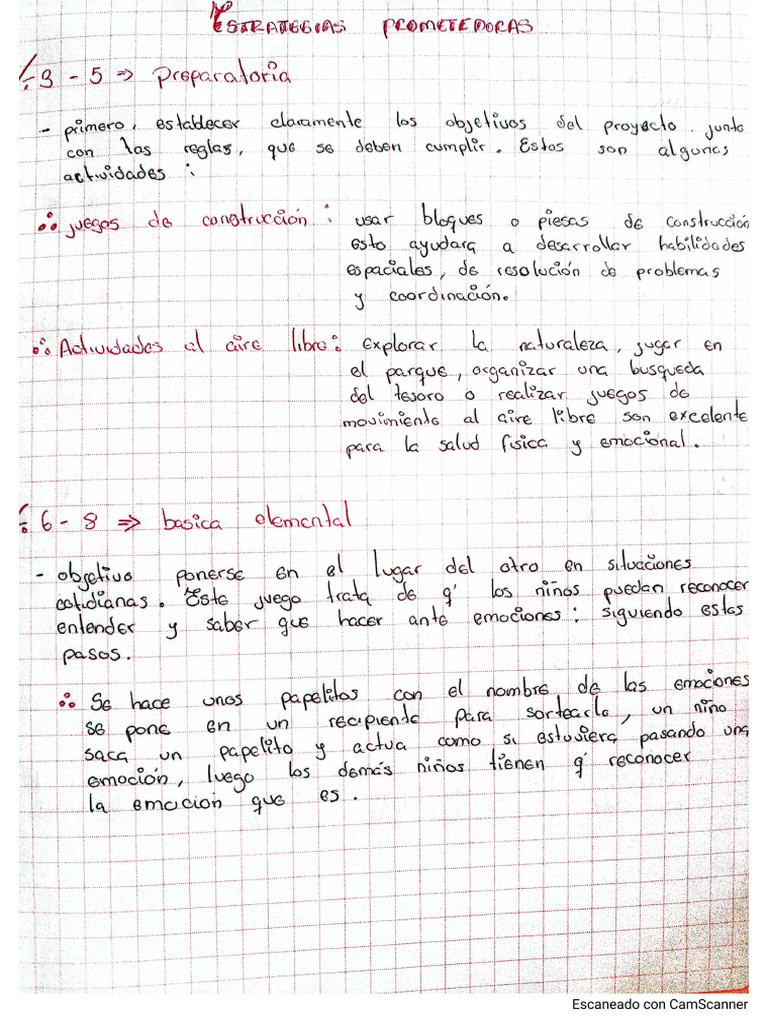 ESTRATEGIAS PROMETEDORAS
÷ 3 - 5 ⇒ Preparatoria
- primero, establecer claramente los objetivos del proyecto. junto
con las reglas, que se deben cumplir. Estos son algunas
actividades :
∴ juegos de construcción : usar bloques o piesas de construcción
esto ayudara a desarrollar habilidades
espaciales, de resolución de problemas
y coordinación.
∴ Actividades al aire libre : explorar la naturaleza, jugar en
el parque, organizar una busqueda
del tesoro o realizar juegos de
movimiento al aire libre son excelente
para la salud física y emocional.
÷ 6 - 8 ⇒ basica elemental
- objetivo ponerse en el lugar del otro en situaciones
cotidianas. Este juego trata de q' los niños puedan reconocer
entender y saber que hacer ante emociones : siguiendo estas
pasos.
∴ Se hace unos papelitos con el nombre de las emociones
se pone en un recipiente para sortearlo, un niño
saca un papelito y actua como si estuviera pasando una
emoción, luego los demás niños tienen q' reconocer
la emoción que es.
Escaneado con CamScanner